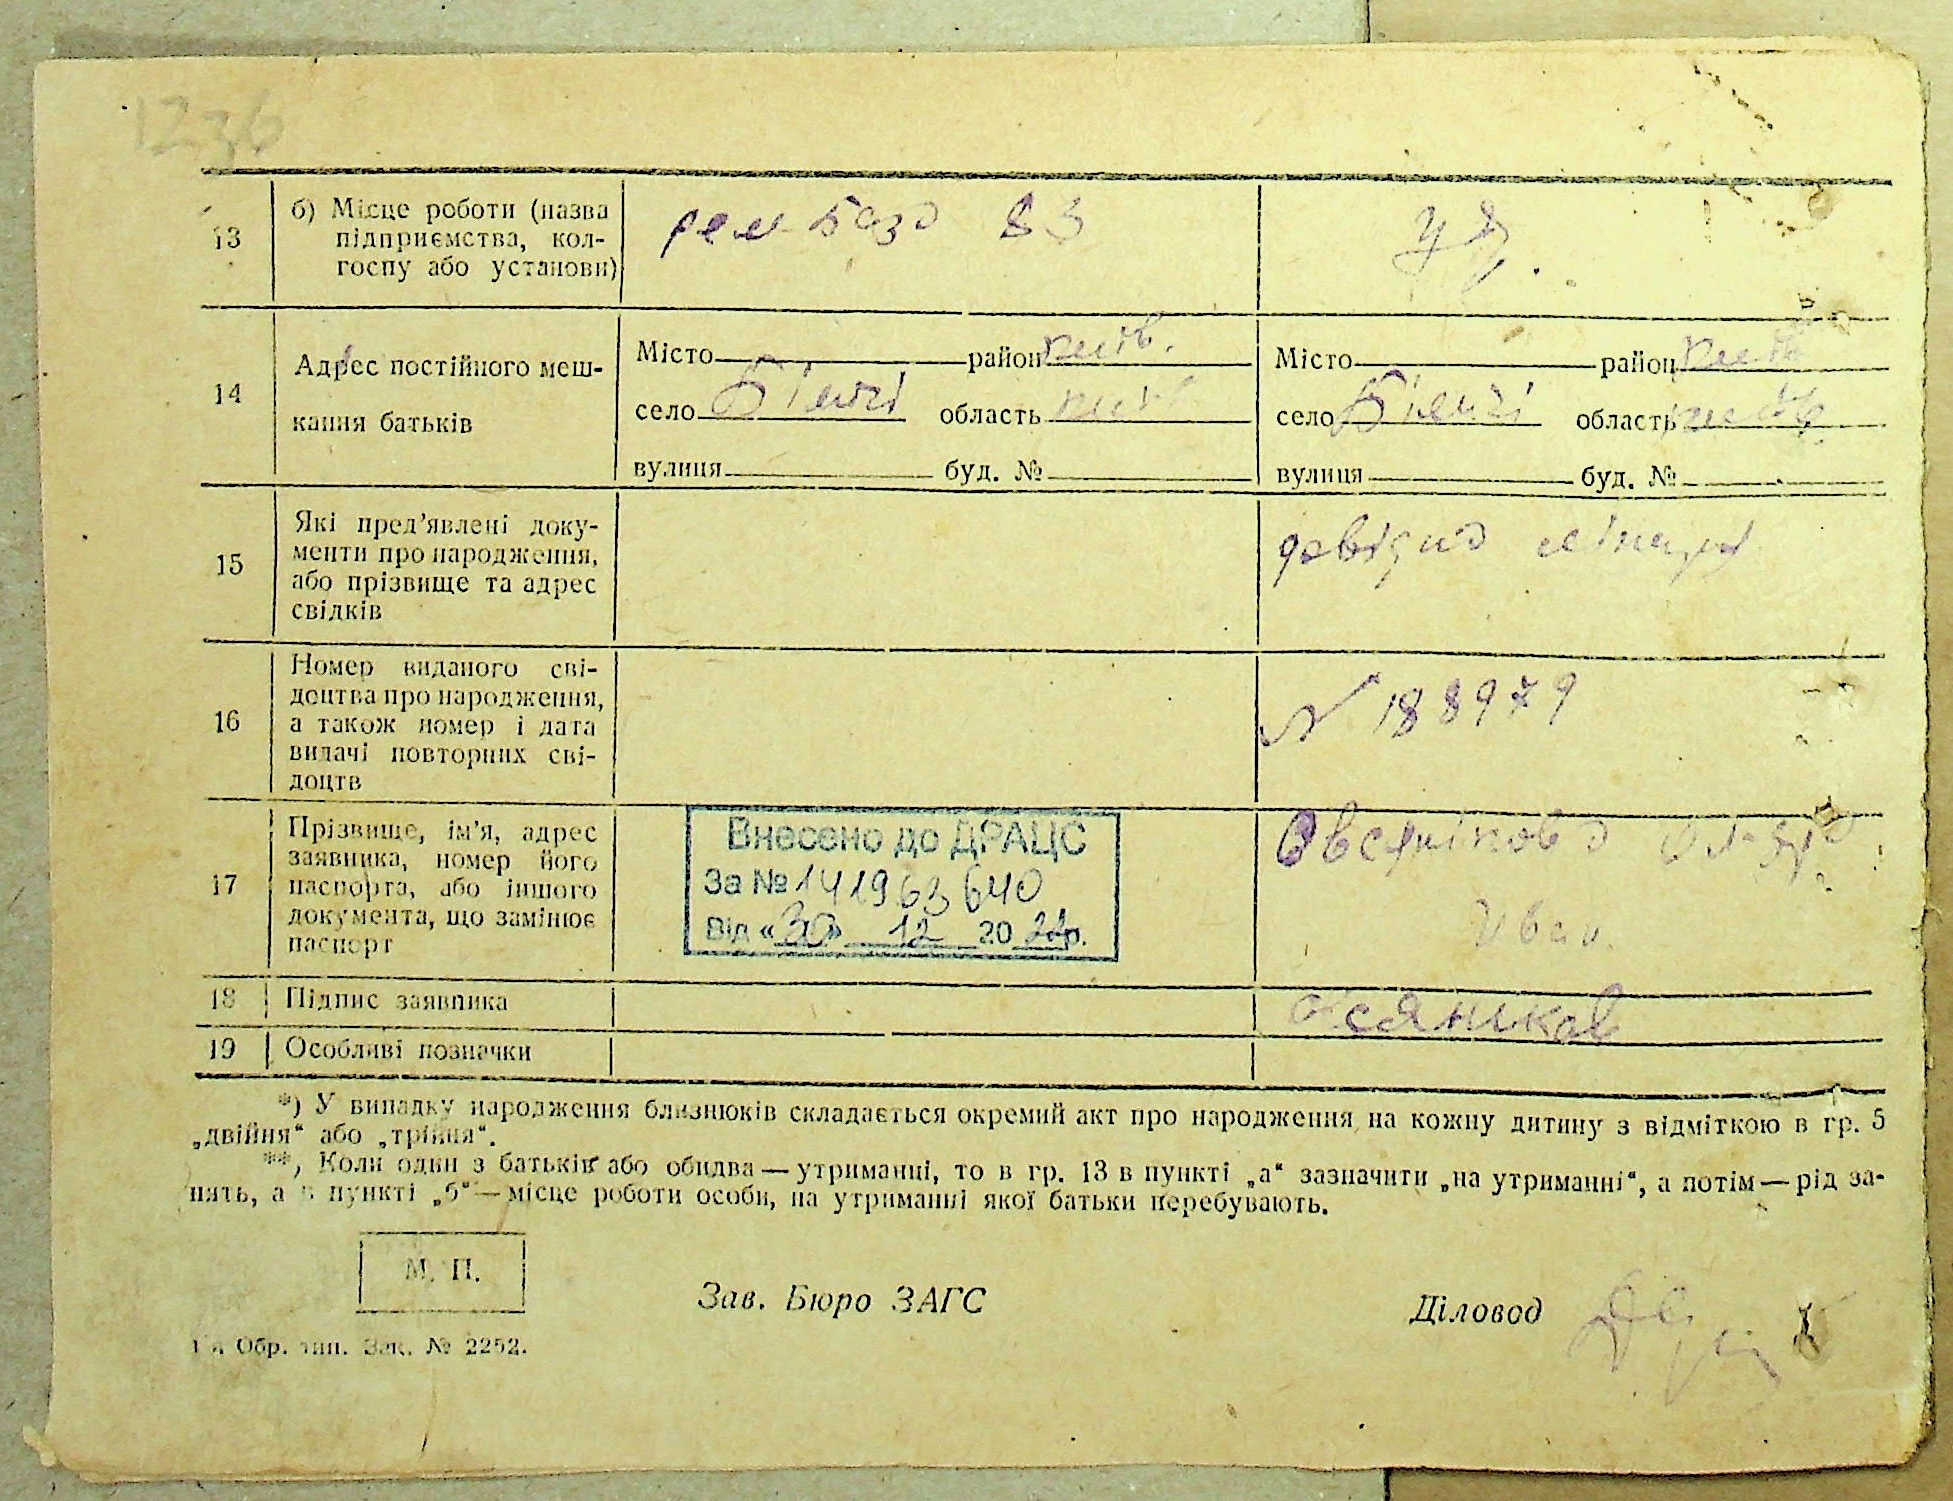 1236
13 б) Місце роботи (назва
підприємства, кол-
госпу або установи)
рем база 83
14 Адрес постійного меш-
кання батьків
Місто район київ.
село Біличі область київ
вулиця буд. №
Місто район київ
село Біличі область київ.
вулиця буд. №
15 Які пред'явлені доку-
менти про народження,
або прізвище та адрес
свідків
довідка міліції
16 Номер виданого сві-
доцтва про народження,
а також номер і дата
видачі повторних сві-
доцтв
N 188979
17 Прізвище, ім'я, адрес
заявника, номер його
паспорта, або іншого
документа, що замінює
паспорт
Внесено до ДРАЦС
За № 141963640
Від « 30 » 12 20 22р.
Овсяніков
Іван.
18 Підпис заявника
19 Особливі позначки
*) У випадку народження близнюків складається окремий акт про народження на кожну дитину з відміткою в гр. 5
„двійня“ або „трійня“.
**) Коли один з батьків або обидва — утриманці, то в гр. 13 в пункті „а“ зазначити „на утриманні“, а потім — рід за-
нять, а в пункті „б“ — місце роботи особи, на утриманні якої батьки перебувають.
М. П.
Зав. Бюро ЗАГС
Діловод
1-я Обр. тип. Зак. № 2252.